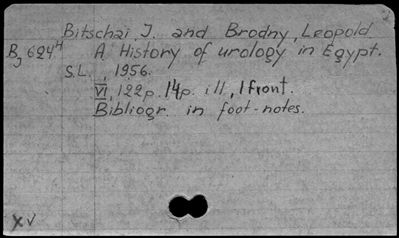 Bitschai, J. and Brodny, Leopold.
Bg 624H A History of urology in Egypt.
S.L., 1956.
VI, 122p. 14p. ill, 1 front.
Bibliogr. in foot-notes.
X V